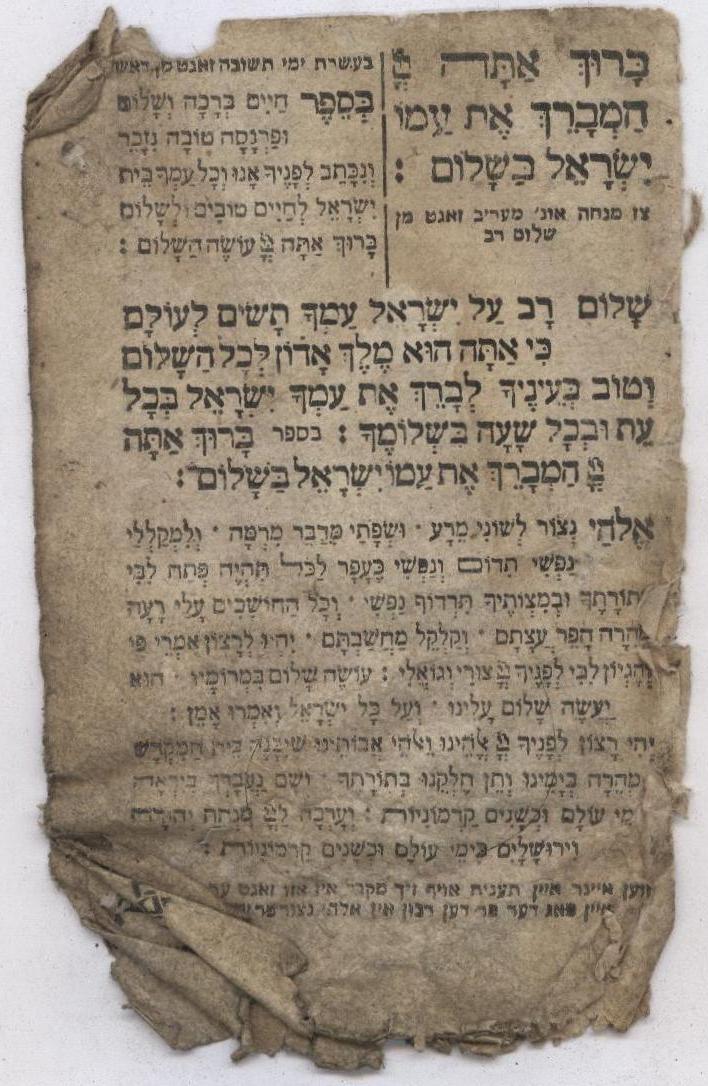 בָּרוּךְ אַתָּה יְיָ
הַמְבָרֵךְ אֶת עַמּוֹ
יִשְׂרָאֵל בַּשָׁלוֹם :
צו מנחה אונ' מעריב זאגט מן
שלום רב
בעשרת ימי תשובה זאגט מן דאש
בְּסֵפֶר חַיִּים בְּרָכָה וְשָׁלוֹם
וּפַרְנָסָה טוֹבָה נִזָכֵר
וְנִכָּתֵב לְפָנֶיךָ אָנוּ וְכָל עַמְךָ בֵּית
יִשְׂרָאֵל לְחַיִּים טוֹבִים וּלְשָׁלוֹם
בָּרוּךְ אַתָּה יְיָ עוֹשֶׂה הַשָׁלוֹם :
שָׁלוֹם רָב עַל יִשְׂרָאֵל עַמְךָ תָּשִׂים לְעוֹלָם
כִּי אַתָּה הוּא מֶלֶךְ אָדוֹן לְכָל הַשָׁלוֹם
וְטוֹב בְּעֵינֶיךָ לְבָרֵךְ אֶת עַמְךָ יִשְׂרָאֵל בְּכָל
עֵת וּבְכָל שָׁעָה בִּשְׁלוֹמֶךָ : בספר בָּרוּךְ אַתָּה
יְיָ הַמְבָרֵךְ אֶת עַמּוֹ יִשְׂרָאֵל בַּשָׁלוֹם :
אֱלֹהַי נְצוֹר לְשׁוֹנִי מֵרָע · וּשְׂפָתַי מִדַּבֵּר מִרְמָה · וְלִמְקַלְלַי
נַפְשִׁי תִדּוֹם וְנַפְשִׁי כֶּעָפָר לַכֹּל תִּהְיֶה פְּתַח לִבִּי
תוֹרָתֶךָ וּבְמִצְוֹתֶיךָ תִּרְדּוֹף נַפְשִׁי · וְכָל הַחוֹשְׁבִים עָלַי רָעָה
מְהֵרָה הָפֵר עֲצָתָם · וְקַלְקֵל מַחֲשַׁבְתָּם · יִהְיוּ לְרָצוֹן אִמְרֵי פִי
וְהֶגְיוֹן לִבִּי לְפָנֶיךָ יְיָ צוּרִי וְגוֹאֲלִי : עוֹשֶׂה שָׁלוֹם בִּמְרוֹמָיו · הוּא
יַעֲשֶׂה שָׁלוֹם עָלֵינוּ · וְעַל כָּל יִשְׂרָאֵל וְאִמְרוּ אָמֵן :
יְהִי רָצוֹן לְפָנֶיךָ יְיָ אֱלֹהֵינוּ וֵאלֹהֵי אֲבוֹתֵינוּ שֶׁיִּבָּנֶה בֵּית הַמִּקְדָּשׁ
מְהֵרָה בְיָמֵינוּ וְתֵן חֶלְקֵנוּ בְּתוֹרָתֶךָ · וְשָׁם נַעֲבָדְךָ בְּיִרְאָה
מֵי עוֹלָם וּכְשָׁנִים קַדְמוֹנִיוֹת : וְעָרְבָה לַיְיָ מִנְחַת יְהוּדָה
וִירוּשָׁלָיִם כִּימֵי עוֹלָם וּכְשָׁנִים קַדְמוֹנִיוֹת :
ווען איינר איין תענית אויף זיך מקבל איז אזו זאגט ער
איין טאג דער פר דען רבון אין אלהי נצור